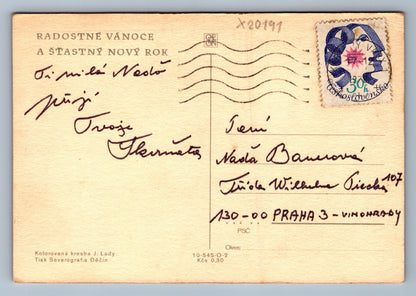 x20191
RADOSTNÉ VÁNOCE
A ŠŤASTNÝ NOVÝ ROK
Ti milá Naďo
přejí
Tvoje
30h
Československo
Paní
Naďa Bauerová
Třída Wilhelma Piecka 107
130-00 PRAHA 3 - VINOHRADY
PSČ
Okres
Kolorovaná kresba J. Lady
Tisk Severografia Děčín
10-545-O-2
Kčs 0,50